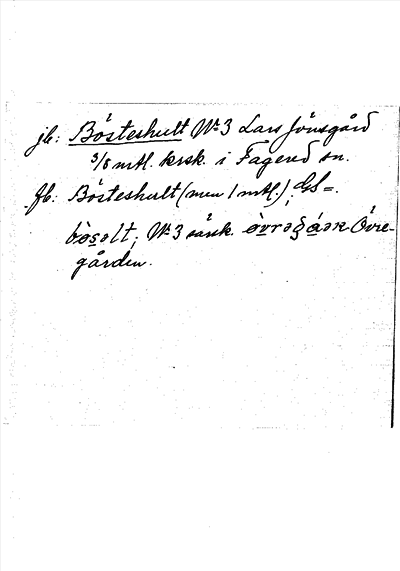 jb: Bösteshult No 3 Lars Jönsgård
3/8 mtl. krsk. i Fagered sn.
fb: Bösteshult (men 1 mtl.); Gs =.
bòsəlt; No 3 särsk. Övre-
gården.